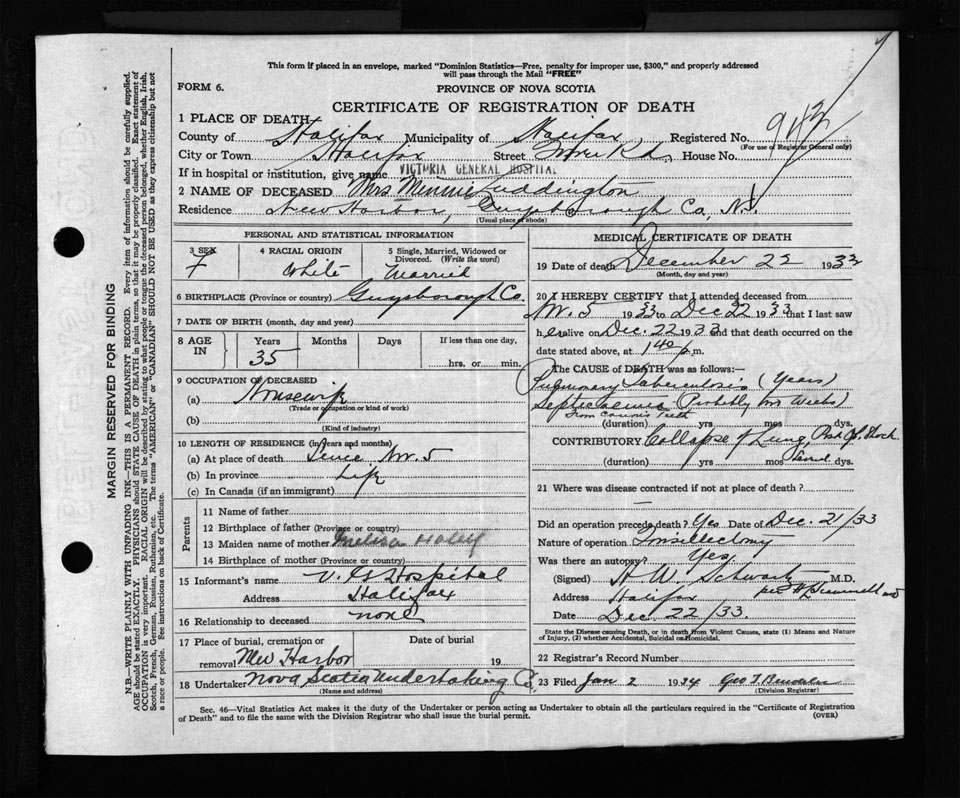 This form if placed in an envelope, marked "Dominion Statistics—Free, penalty for improper use, $300," and properly addressed
will pass through the Mail "FREE"
FORM 6.
PROVINCE OF NOVA SCOTIA
CERTIFICATE OF REGISTRATION OF DEATH
1 PLACE OF DEATH
County of Halifax Municipality of Halifax Registered No. 942
(For use of Registrar General only)
City or Town Halifax Street Tower Rd. House No.
If in hospital or institution, give name VICTORIA GENERAL HOSPITAL
2 NAME OF DECEASED Mrs Minnie Luddington
Residence New Harbor, Guysborough Co, N.S.
(Usual place of abode)
PERSONAL AND STATISTICAL INFORMATION
3 SEX
F
4 RACIAL ORIGIN
White
5 Single, Married, Widowed or
Divorced. (Write the word)
Married
6 BIRTHPLACE (Province or country) Guysborough Co.
7 DATE OF BIRTH (month, day and year)
8 AGE
IN
Years
35
Months
Days
If less than one day,
hrs. or min.
9 OCCUPATION OF DECEASED
(a) Housewife
(Trade or occupation or kind of work)
(b)
(Kind of industry)
10 LENGTH OF RESIDENCE (in years and months)
(a) At place of death Since Nov. 5
(b) In province Life
(c) In Canada (if an immigrant)
Parents
11 Name of father
12 Birthplace of father (Province or country)
13 Maiden name of mother Melissa
14 Birthplace of mother (Province or country)
15 Informant's name V. G Hospital
Address Halifax
16 Relationship to deceased none
17 Place of burial, cremation or
removal New Harbor
Date of burial
19
18 Undertaker Nova Scotia Undertaking Co.
(Name and address)
MEDICAL CERTIFICATE OF DEATH
19 Date of death December 22 1933
(Month, day and year)
20 I HEREBY CERTIFY that I attended deceased from
Nov. 5 1933 to Dec 22 1933 that I last saw
her alive on Dec. 22 1933 and that death occurred on the
date stated above, at 1 40 p.m.
The CAUSE of DEATH was as follows:—
Pulmonary Tuberculosis (Years)
Septicaemia (Probably Weeks)
from Teeth
(duration) yrs mos dys.
CONTRIBUTORY Collapse of Lung, Post Op. Shock
(duration) yrs mos dys.
21 Where was disease contracted if not at place of death?
Did an operation precede death? Yes Date of Dec. 21/33
Nature of operation Tonsillectomy
Was there an autopsy? Yes
(Signed) H. W. Schwartz M.D.
Address Halifax
Date Dec. 22/33.
State the Disease causing Death, or in death from Violent Causes, state (1) Means and Nature
of Injury, (2) whether Accidental, Suicidal or Homicidal.
22 Registrar's Record Number
23 Filed Jan 2 1934 Geo T.
(Division Registrar)
Sec. 46—Vital Statistics Act makes it the duty of the Undertaker or person acting as Undertaker to obtain all the particulars required in the "Certificate of Registration
of Death" and to file the same with the Division Registrar who shall issue the burial permit.
(OVER)
MARGIN RESERVED FOR BINDING
N.B.—WRITE PLAINLY WITH UNFADING INK—THIS IS A PERMANENT RECORD. Every item of information should be carefully supplied.
AGE should be stated EXACTLY. PHYSICIANS should STATE CAUSE OF DEATH in plain terms, so that it may be properly classified. Exact statement of
OCCUPATION is very important. RACIAL ORIGIN will be described by stating to what people or tongue the deceased person belonged, whether English, Irish,
Scotch, French, German, Russian, Ruthenian, etc. The terms "AMERICAN" or "CANADIAN" SHOULD NOT BE USED as they express citizenship but not
a race or people. See instructions on back of Certificate.